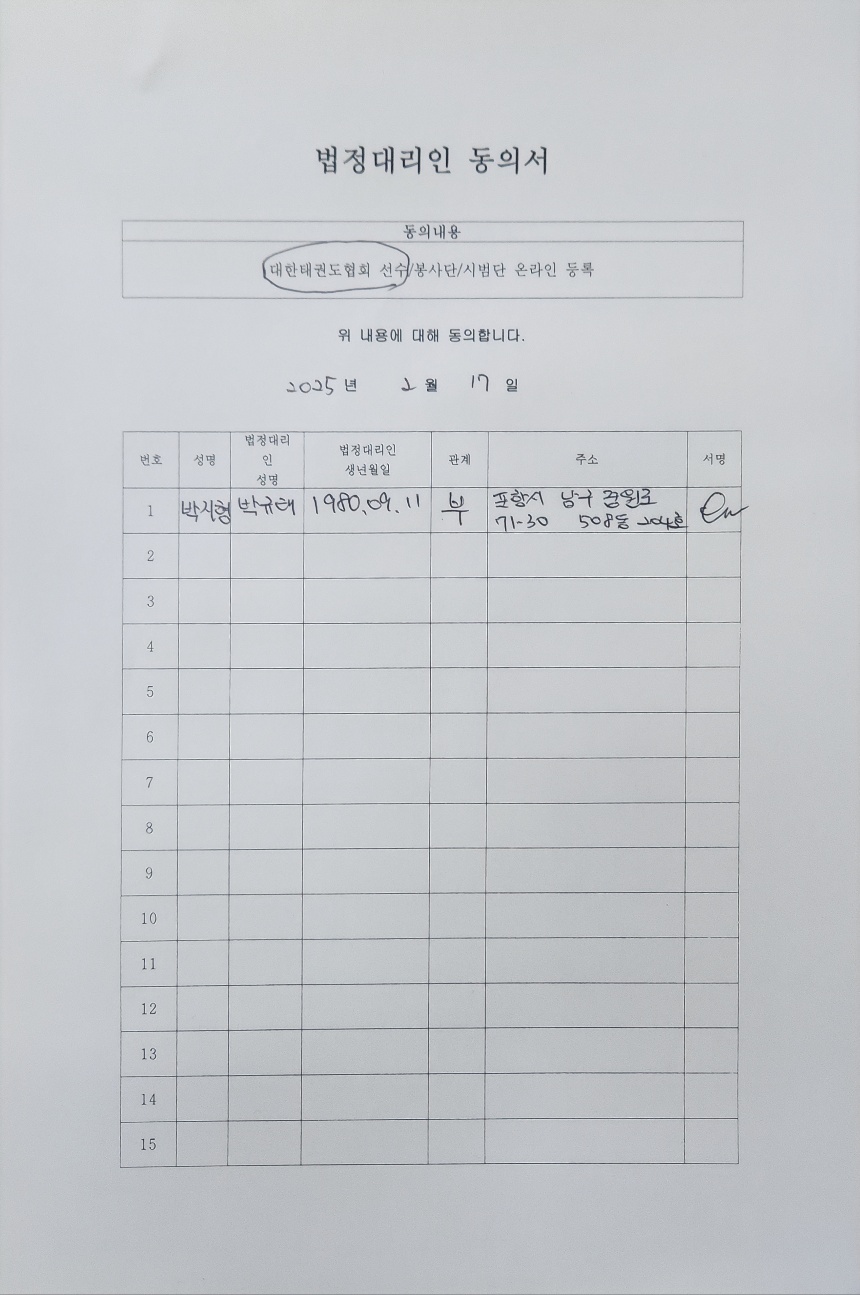 법정대리인 동의서
동의내용
대한태권도협회 선수/봉사단/시범단 온라인 등록
위 내용에 대해 동의합니다.
2025년 2월 17일
번호 성명 법정대리인 성명 법정대리인 생년월일 관계 주소 서명
1 박시형 박규태 1980.09.11 부 포항시 남구
71-30 508동 204호
2
3
4
5
6
7
8
9
10
11
12
13
14
15